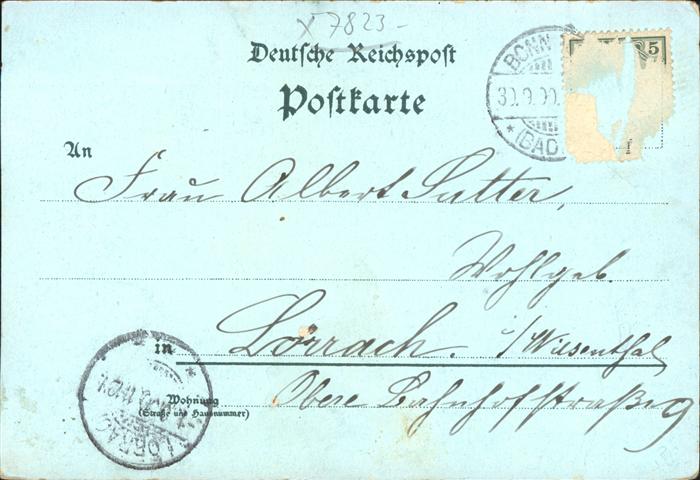 x 7823-
Deutsche Reichspost
Postkarte
BONN
30.9.99.
(BAD
5
An
Frau Albert Sutter,
Wohlgeb.
in Lörrach. i/Wiesenthal
Wohnung
(Straße und Hausnummer)
Obere Bahnhofstraße 9
LÖRRACH